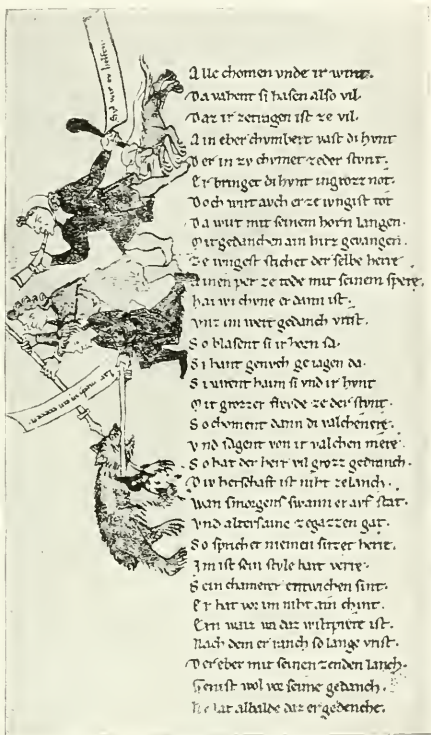 Alle chomen vnde ir wint.
Da vahent si hasen also vil.
Daz ir zetragen ist ze vil.
Ain eber chvmbert vast di hvnt
Der in zv chvmet zeder stvnt.
Er bringet di hvnt ingrozz not.
Doch wirt avch er ze ivngist tot
Da wirt mit seinem horn langen.
Mit gedanchen ain hirz gevangen.
Ze ivngest stichet der selbe herre
Ainen per ze tode mit seinem spere.
hai wi chvne er dann ist.
Vnz im wert gedanch vrist.
So blasent si ir horn sa.
Si hant genvch geiagen da.
Si varent haim si vnd ir hvnt
Mit grozzer frevde ze der stvnt.
So choment dann di valchenere.
Vnd sagent von ir valchen mere.
So hat der herr vil grozz gedranch.
Div herschaft ist niht zelanch.
Wan smorgens swann er avf stat.
Vnd altersaine zegazzen gat.
So sprichet niemen sitzet herre.
Im ist sein style hart verre.
Sein chamerer entwichen sint.
Er hat vor im niht ain chint.
Ern waiz wa daz wiltpræte ist.
Nach dem er ranch so lange vrist.
Der eber mit seinen zenden lanch.
Genist wol vor seime gedanch.